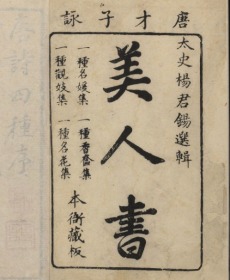 唐才子詠
太史楊君錫選輯
美人書
一種名媛集
一種香奩集
一種觀妓集
一種名花集
本衙藏板